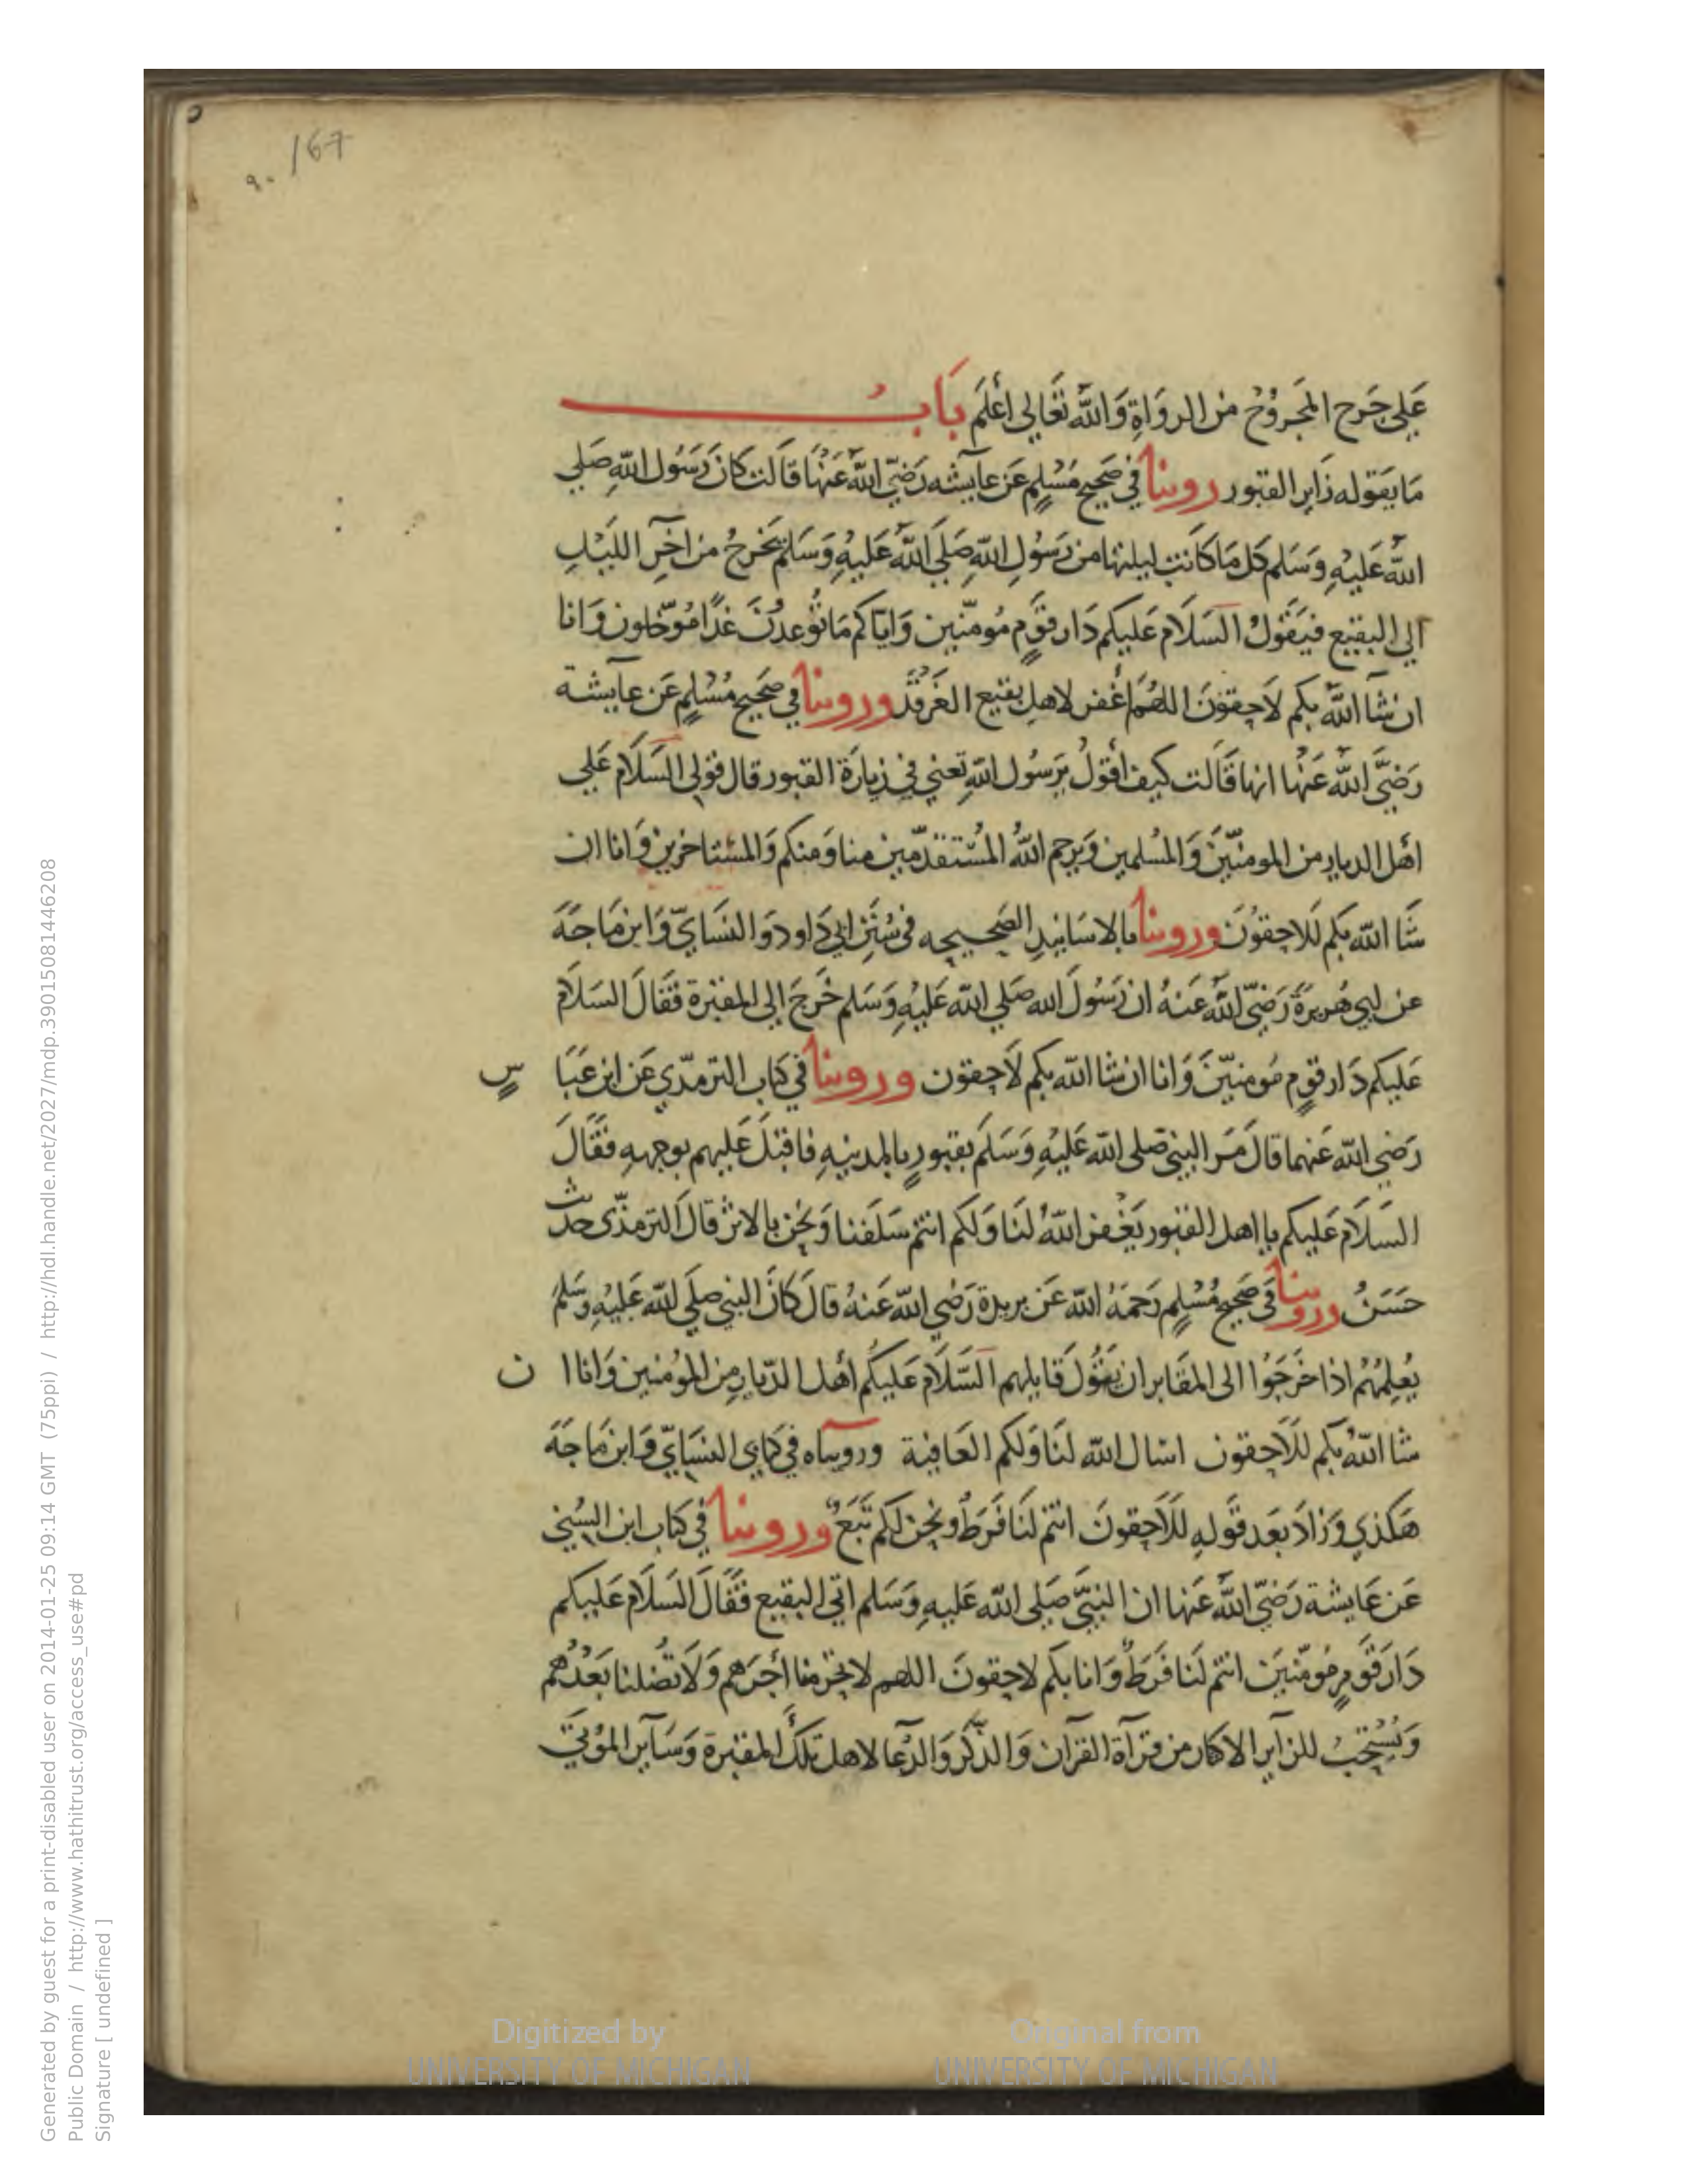 167
٩٠
عَلى جَرح المَجروُح من الروَاةِ وَاللّه تَعَالى اعْلَم بَابُ
مَا يَقوله زَاير القبور روينا في صَحيح مُسْلمٍ عَن عآيشه رَضيّ اللّه عَنْهَا قالت كانَ رَسُول اللّهِ صَلي
اللّه عَليْهِ وَسَلم كل مَا كانَت ليلتها من رَسُولِ اللّهِ صَلَي اللّه عَليْهِ وَسَلم يَخرجُ من آخِرِ اللّيْلِ
الي البقيع فيَقوْلُ السَلَام عَليكم دَار قَوٍم مُومنّين وَاياكم مَا تُوعدُنَ غدًا مُوّجلون وَانا
ان شآ اللّه بكم لَاحِقوْنَ اللهُمَ اغْفر لاهل بقيع الغَرقَد وروينا في صَحيح مُسْلمٍ عَن عآيشة
رَضيَّ اللّه عَنْها انها قَالت كيف اقولُ يَرَسُول اللّهِ تعني في زيارَة القبور قال قولى السَلَام عَلي
اهْل الديار من المومنيّنَ وَالمسُلمين وَيرحم اللّهُ المسْتقدمّين منا وَمنكم وَالمستاخرين وَانا ان
شَا اللّه بكم للَاحِقوُنَ وروينا بالاسَانيدِ الصَحيحِه في سُنَنِ ابي دَاود وَالنسَايّ وَابن مَاجَهَ
عن ابي هُريرَةَ رَضيّ اللّه عَنهُ ان رَسُولَ الله صَلي اللّه عَليْهِ وَسَلم خَرجَ الي المقبرة فقَالَ السَلَام
عَليكم دَار قوٍم مُومنيّنَ وَانا ان شا اللّه بكم لَاحِقون وروينا في كتاب الترمذّي عَن ابن عَبَا سٍ
رَضي اللّه عَنهما قالَ مَرَ البني صَلى اللّه عَليْهِ وَسَلَم بقبورٍ بالمدينهِ فاقبَلَ عَليهم بوجهِهِ فقَالَ
السَلَام عَليكم يا اهل القبور يَغْفر اللّهُ لنَا وَلكم انتم سَلَفنا وَنَحن بالاثر قالَ الترمذّي حدث
حَسَنُ وروينا في صَحيح مُسْلمٍ رَحمَهُ اللّه عَن بريدة رَضي اللّه عَنهُ قالَ كانَ البني صلي اللّه عَليْهِ وسَلم
يُعلِمُهُم اذا خَرَجُوا الى المقَابر ان يقُولَ قَايلهم السَّلَام عَليكُم أهل الدّيارِ مِن المؤمنين وَانا ا ن
شا اللّهُ بكم للَاحقون اسَال اللّه لنَا وَلكم العَافية ورويناه في كتابي النسَايّ وَابن مَاجَهَ
هَكذي وَزادَ بَعد قوله للَاحِقونَ انتم لنَا فَرَطُ ونحن لكم تَبَعُ وروينا في كتاب ابن السُنِي
عَن عَايشة رَضيّ اللّه عَنها ان النبيّ صَلي اللّه عَليهِ وَسَلم اتي البَقيع فقَالَ السَلَام عَليكم
دَار قَوٍم مُومنّينَ انتم لنَا فَرَطُ وَانا بكم لاحِقونَ اللهم لا تحَرمنا أجرَهم وَلَا تضُلنا بَعْدُهم
وَيُسْتحَبُ للزاير الاكثار من قرآة القرآن وَالذّكر وَالدّعا لاهل تلكَ المقبرة وَسَآير المؤتيَ
Generated by guest for a print-disabled user on 2014-01-25 09:14 GMT (75ppi) / http://hdl.handle.net/2027/mdp.39015081446208
Public Domain / http://www.hathitrust.org/access_use#pd
Signature [ undefined ]
Digitized by
UNIVERSITY OF MICHIGAN
Original from
UNIVERSITY OF MICHIGAN